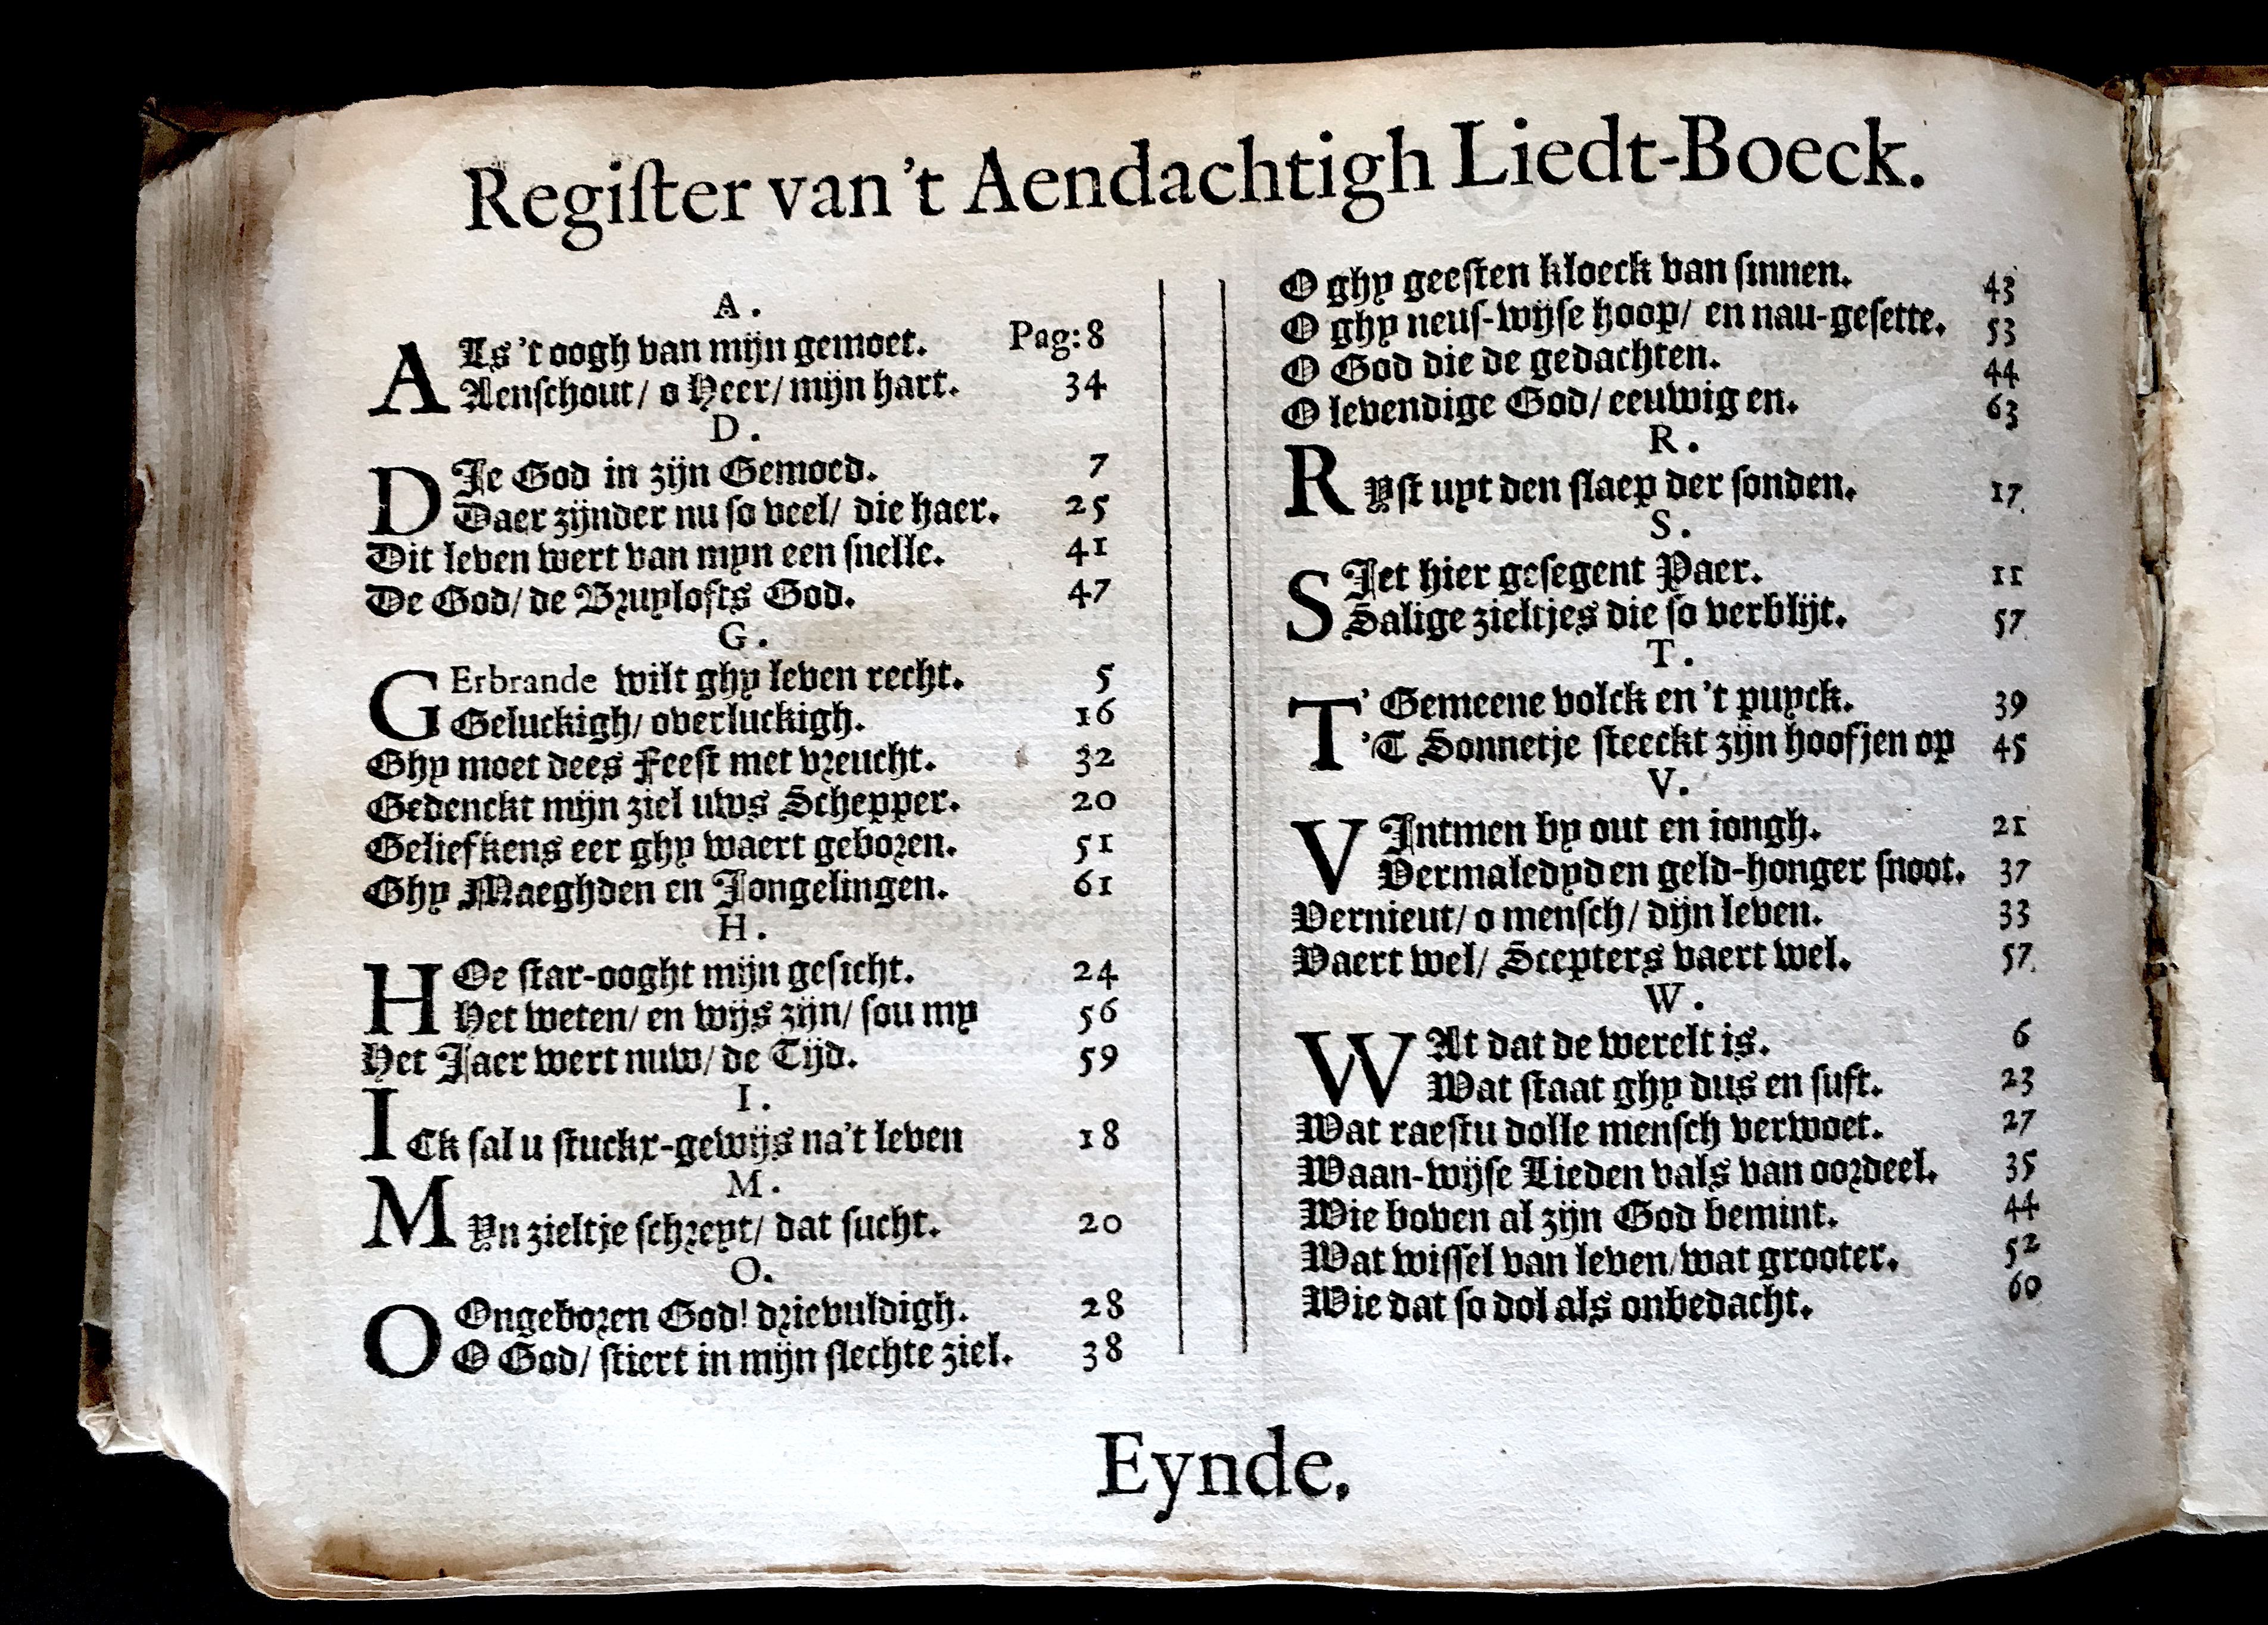 Regiſter van 't Aendachtigh Liedt-Boeck.
A.
ALs 't oogh van mijn gemoet. Pag: 8
Aenſchout/ o Heer/ mijn hart. 34
D.
DIe God in zijn Gemoed. 7
Daer zijnder nu ſo veel/ die haer. 25
Dit leven wert van myn een ſnelle. 41
De God/ de Bruylofts God. 47
G.
GErbrande wilt ghy leven recht. 5
Geluckigh/ overluckigh. 16
Ghy moet dees Feeſt met vreucht. 32
Gedenckt mijn ziel uws Schepper. 20
Geliefkens eer ghy waert geboren. 51
Ghy Maeghden en Jongelingen. 61
H.
HOe ſtar-ooght mijn geſicht. 24
Het weten/ en wijs zijn/ ſou my 56
Het Jaer wert nuw/ de Tijd. 59
I.
ICk ſal u ſtuckx-gewijs na't leven 18
M.
MYn zieltje ſchreyt/ dat ſucht. 20
O.
OOngeboren God! drievuldigh. 28
O God/ ſtiert in mijn ſlechte ziel. 38
O ghy geeſten kloeck van ſinnen. 43
O ghy neuſ-wijſe hoop/ en nau-geſette. 53
O God die de gedachten. 44
O levendige God/ eeuwig en. 63
R.
RYſt uyt den ſlaep der ſonden. 17
S.
SIet hier geſegent Paer. 11
Salige zieltjes die ſo verblijt. 57
T.
T' Gemeene volck en 't puyck. 39
'T Sonnetje ſteeckt zijn hoofjen op 45
V.
VIntmen by out en iongh. 21
Vermaledyden geld-honger ſnoot. 37
Vernieut/ o menſch/ dijn leven. 33
Vaert wel/ Scepters vaert wel. 57
W.
WAt dat de werelt is. 6
Wat ſtaat ghy dus en ſuft. 23
Wat raeſtu dolle menſch verwoet. 27
Waan-wijſe Lieden vals van oordeel. 35
Wie boven al zijn God bemint. 44
Wat wiſſel van leven/ wat grooter. 52
Wie dat ſo dol als onbedacht. 60
Eynde.